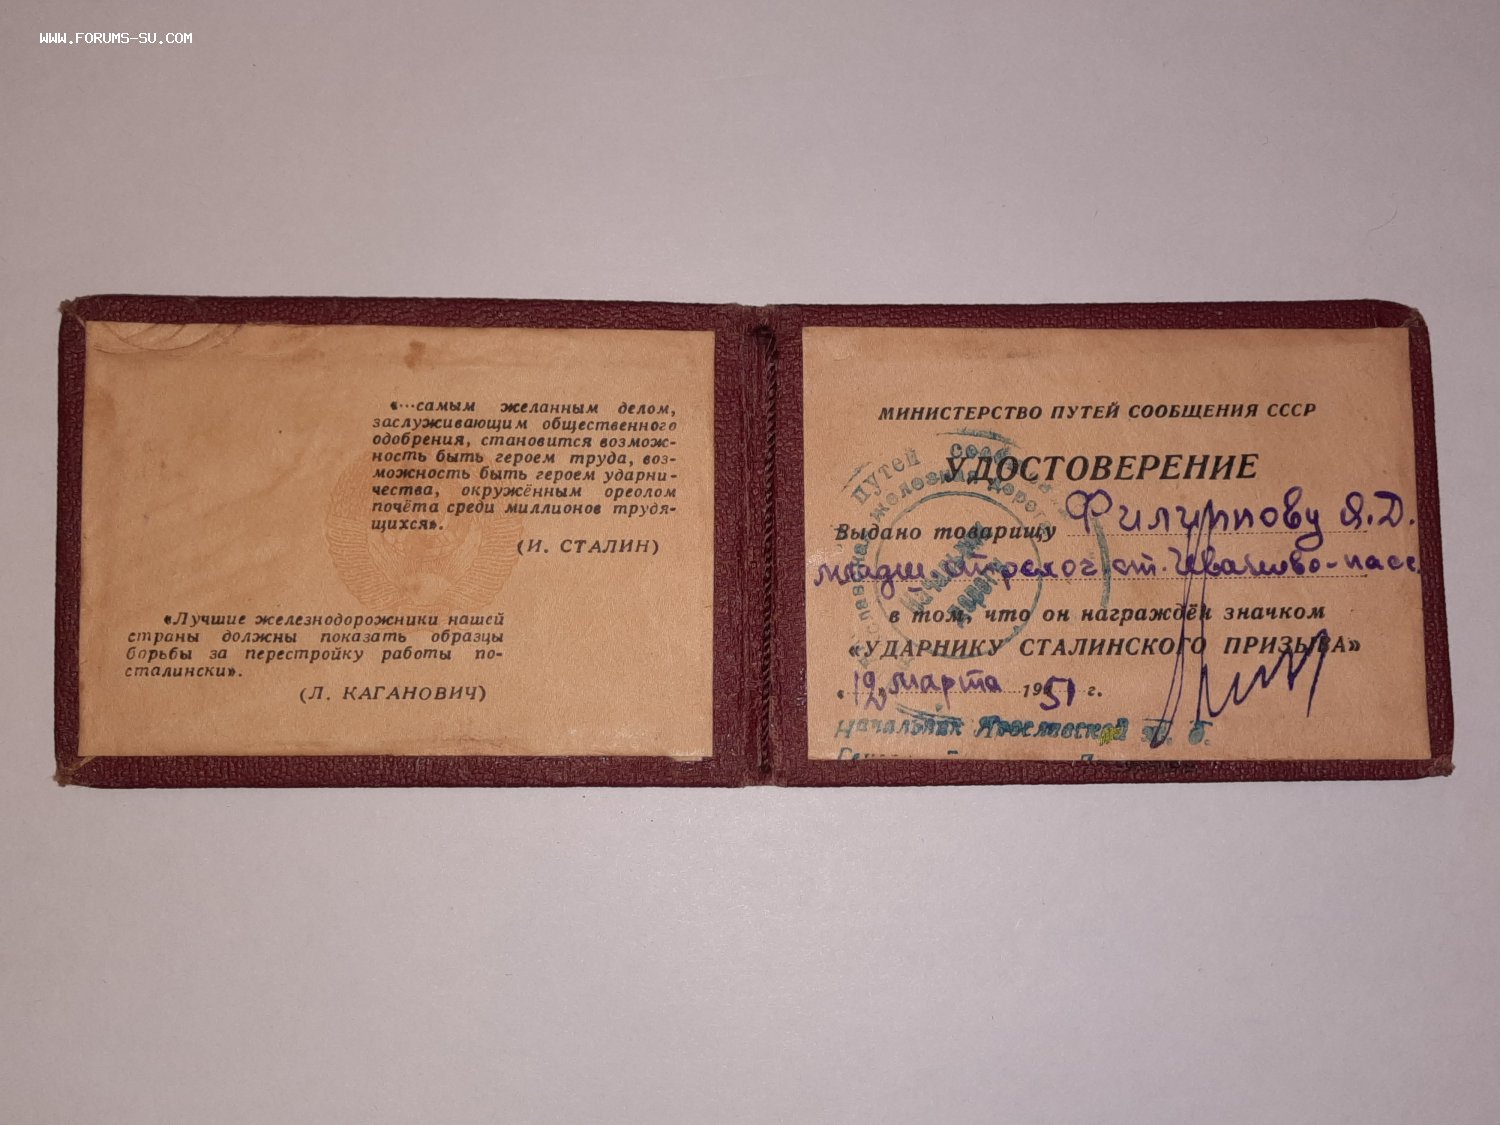 WWW.FORUMS-SU.COM
«...самым желанным делом,
заслуживающим общественного
одобрения, становится возмож-
ность быть героем труда, воз-
можность быть героем ударни-
чества, окружённым ореолом
почёта среди миллионов трудя-
щихся».
(И. СТАЛИН)
«Лучшие железнодорожники нашей
страны должны показать образцы
борьбы за перестройку работы по-
сталински».
(Л. КАГАНОВИЧ)
МИНИСТЕРСТВО ПУТЕЙ СООБЩЕНИЯ СССР
УДОСТОВЕРЕНИЕ
Выдано товарищу Филиппову Я.Д.
ст. Иваново-пасс.
в том, что он награждён значком
«УДАРНИКУ СТАЛИНСКОГО ПРИЗЫВА»
«12» марта 1951 г.
Начальник Ярославской ж. д.
путей сообщ
железная дорога
Начальник
дороги